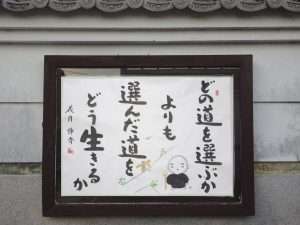 どの道を選ぶか
よりも
選んだ道を
どう生きるか